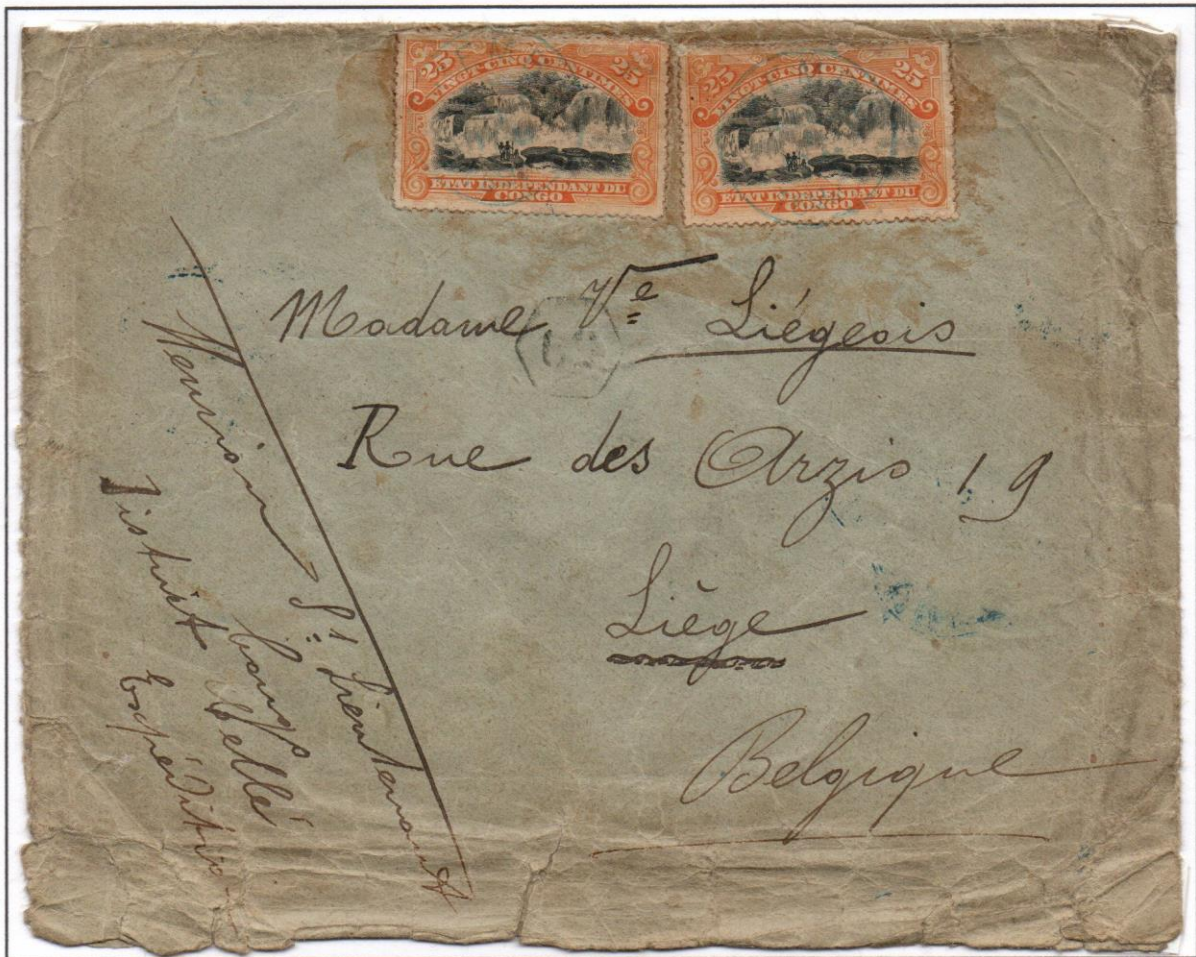 25 VINGT-CINQ CENTIMES 25
ETAT INDEPENDANT DU
CONGO
25 VINGT-CINQ CENTIMES 25
ETAT INDEPENDANT DU
CONGO
Madame Vᵉ Liégeois
Rue des Arzis 19
Liège
Belgique
Henrion Sˢ Lieutenant
Congo
District Uellé
Expédition